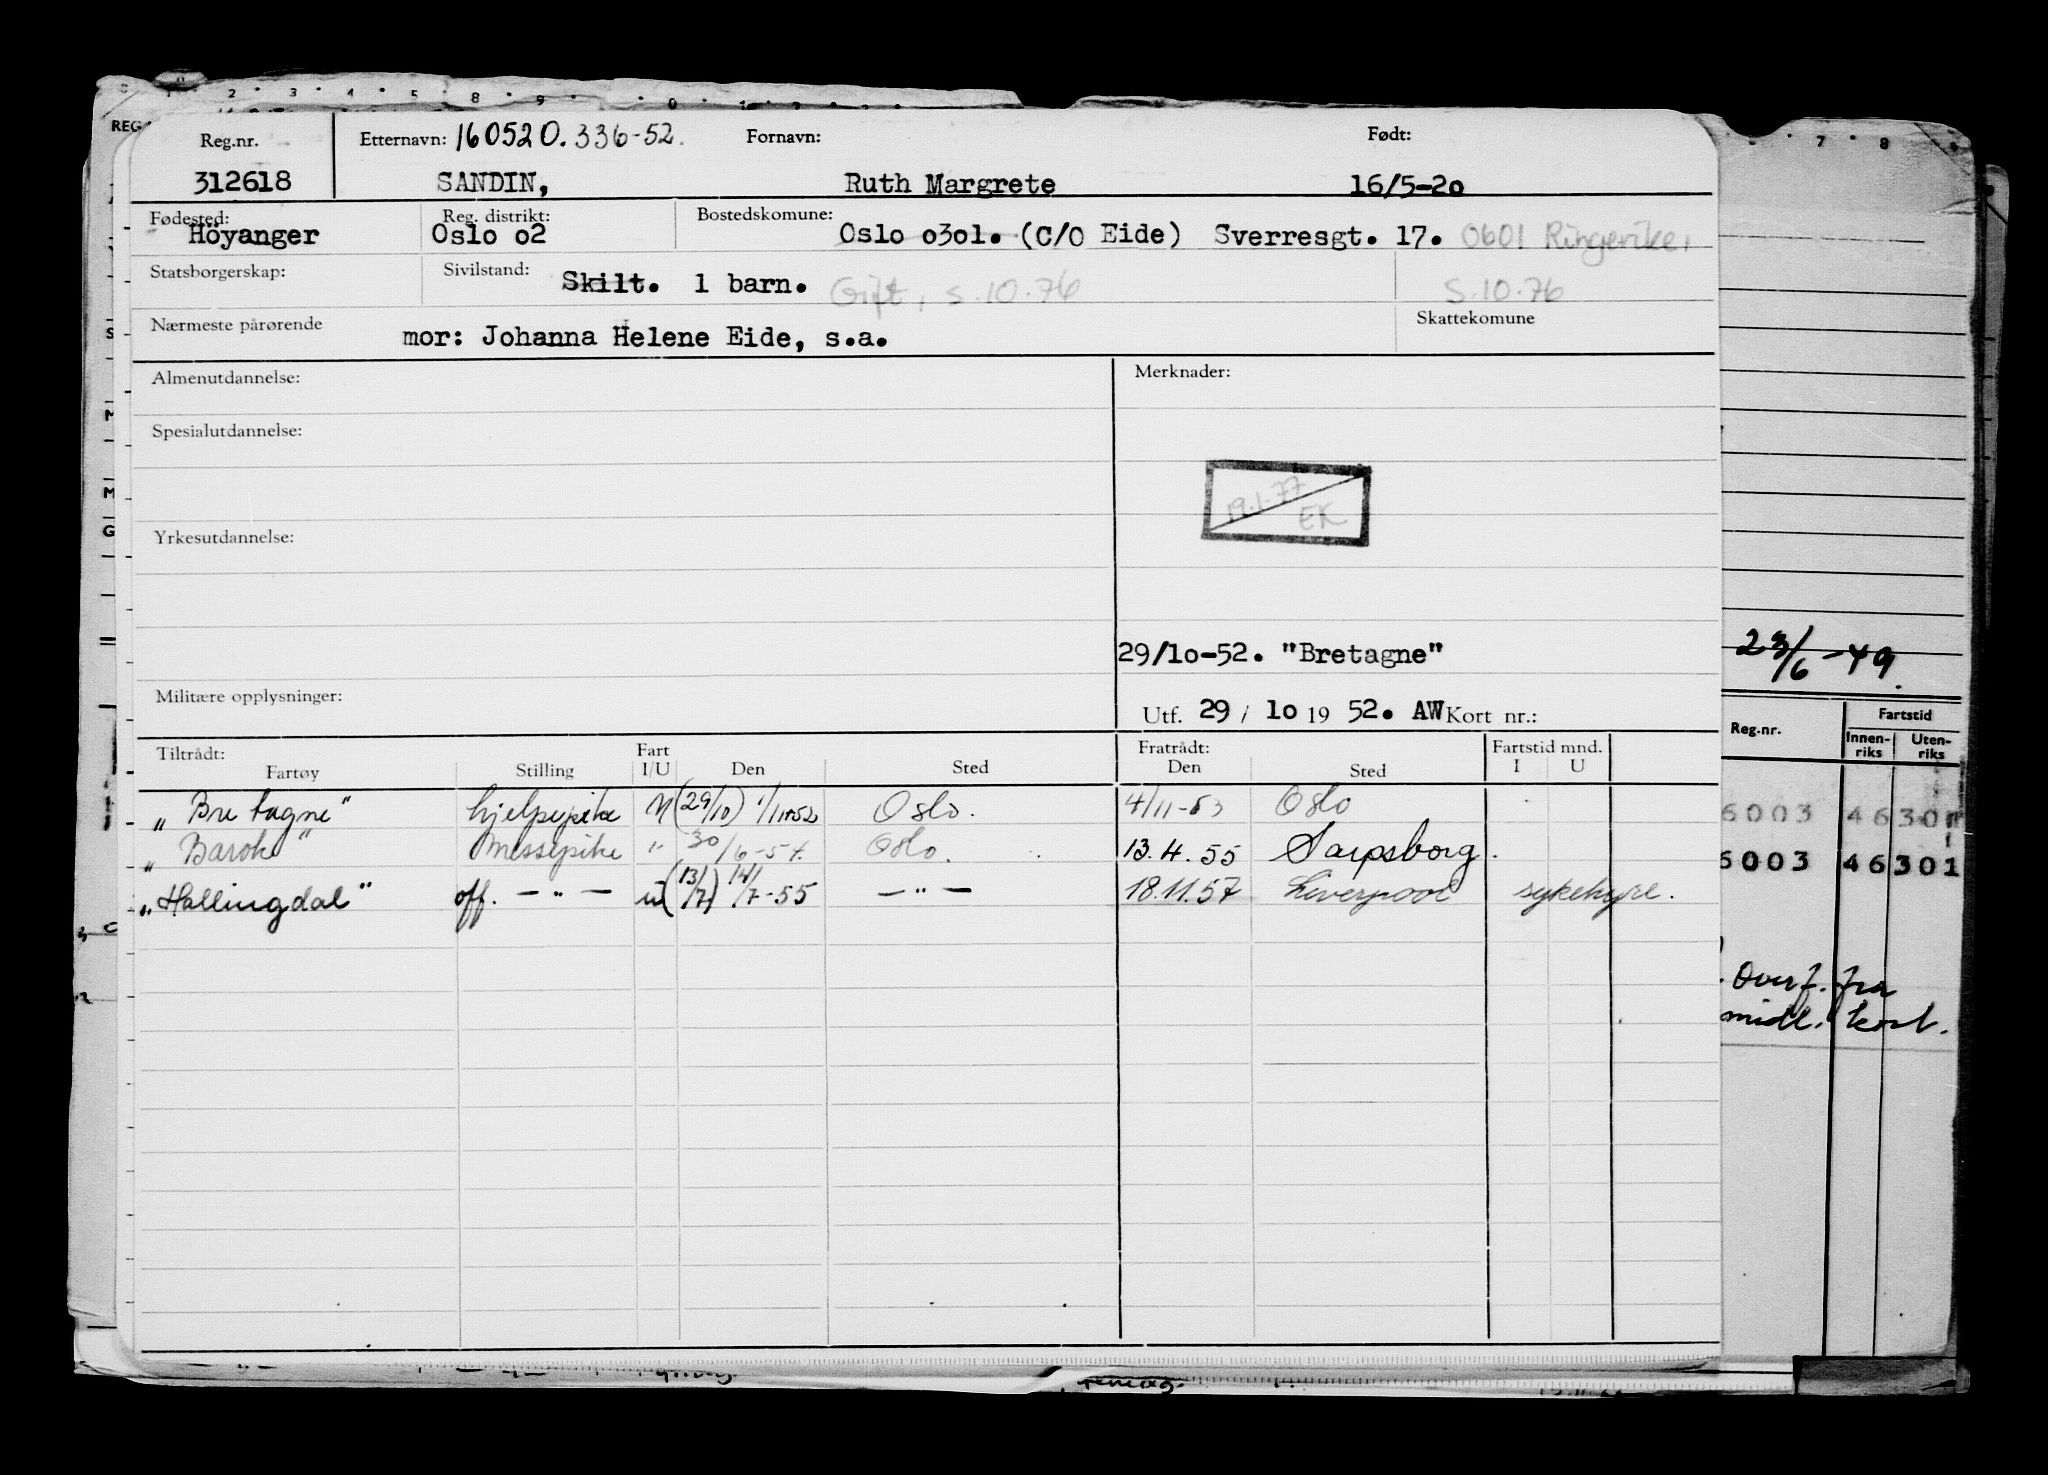 Reg.nr. Etternavn: 160520.336-52. Fornavn: Født:
312618 SANDIN, Ruth Margrete 16/5-2o
Fødested: Reg. distrikt: Bostedskomune:
Höyanger Oslo o2 Oslo o3o1. (C/O Eide) Sverresgt. 17. 0601 Ringerike,
Statsborgerskap: Sivilstand: Skilt. 1 barn. Gift, s.10.76 S.10.76
Nærmeste pårørende mor: Johanna Helene Eide, s.a. Skattekomune
Almenutdannelse: Merknader:
Spesialutdannelse:
19.1-77
EK
Yrkesutdannelse:
29/1o-52. "Bretagne"
Militære opplysninger: Utf. 29 / 1o 19 52. AW Kort nr.:
Tiltrådt: Fart Fratrådt: Fartstid mnd.
Fartøy Stilling I/U Den Sted Den Sted I U
„Bretagne" hjelpepike U (29/10) 1/11-52 Oslo. 4/11-53 Oslo
„Barok" Messepike " 30/6-54. Oslo. 13.4.55 Sarpsborg.
„Hallingdal" off. — " — u (13/7) 14/7-55 — " — 18.11.57 Liverpool sykehyre.
REG
1 2 3 4 5 8 9
7 8
23/6-49.
Reg.nr. Fartstid
Innen-riks Uten-riks
6003 46301
6003 46301
Overf. fra
midl. kort.